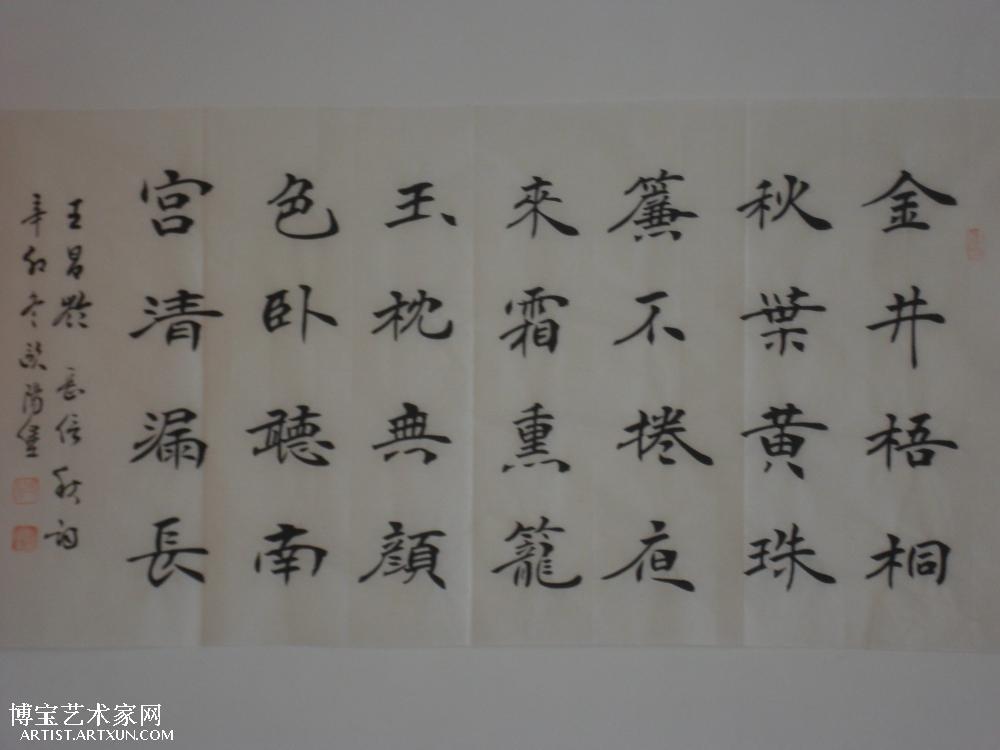 金井梧桐
秋葉黄珠
簾不捲夜
來霜熏籠
玉枕典顔
色卧聽南
宮清漏長
王昌齡 長信秋詞
辛卯冬歐陽
博宝艺术家网
ARTIST.ARTXUN.COM